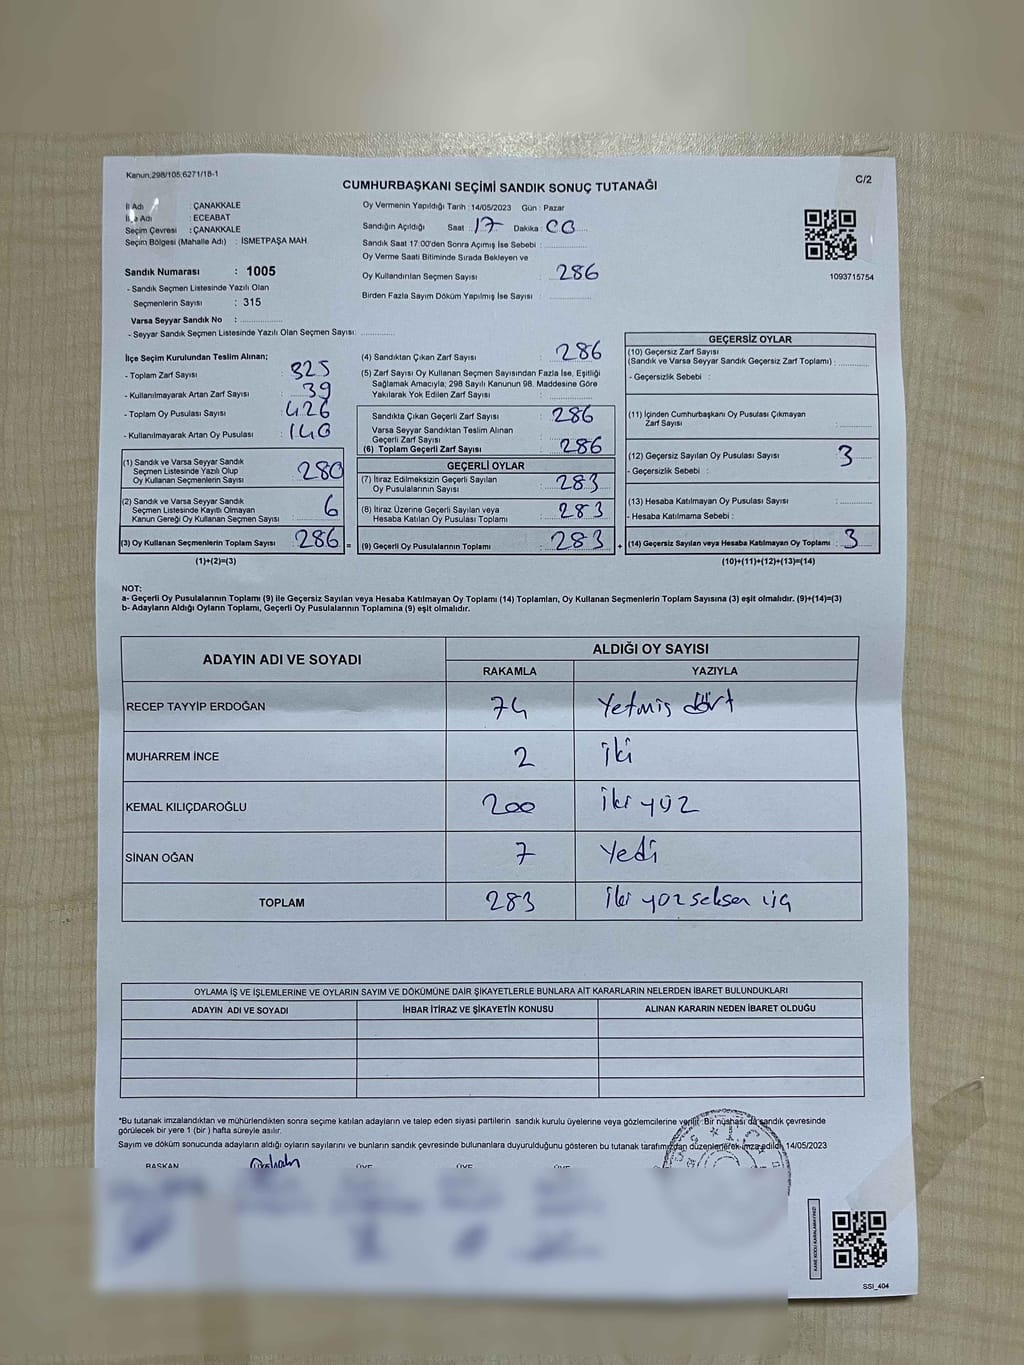 Kanun:298/105;6271/18-1
CUMHURBAŞKANI SEÇİMİ SANDIK SONUÇ TUTANAĞI
C/2
İl Adı : ÇANAKKALE
İlçe Adı : ECEABAT
Seçim Çevresi : ÇANAKKALE
Seçim Bölgesi (Mahalle Adı) : İSMETPAŞA MAH
Sandık Numarası : 1005
- Sandık Seçmen Listesinde Yazılı Olan
Seçmenlerin Sayısı : 315
Varsa Seyyar Sandık No :
- Seyyar Sandık Seçmen Listesinde Yazılı Olan Seçmen Sayısı:
Oy Vermenin Yapıldığı Tarih : 14/05/2023 Gün : Pazar
Sandığın Açıldığı Saat : 17 Dakika : 00
Sandık Saat 17:00'den Sonra Açımış İse Sebebi :
Oy Verme Saati Bitiminde Sırada Bekleyen ve
Oy Kullandırılan Seçmen Sayısı : 286
Birden Fazla Sayım Döküm Yapılmış İse Sayısı :
1093715754
İlçe Seçim Kurulundan Teslim Alınan;
- Toplam Zarf Sayısı : 325
- Kullanılmayarak Artan Zarf Sayısı : 39
- Toplam Oy Pusulası Sayısı : 426
- Kullanılmayarak Artan Oy Pusulası : 140
(1) Sandık ve Varsa Seyyar Sandık
Seçmen Listesinde Yazılı Olup
Oy Kullanan Seçmenlerin Sayısı : 280
(2) Sandık ve Varsa Seyyar Sandık
Seçmen Listesinde Kayıtlı Olmayan
Kanun Gereği Oy Kullanan Seçmen Sayısı 6
(3) Oy Kullanan Seçmenlerin Toplam Sayısı 286 =
(1)+(2)=(3)
(4) Sandıktan Çıkan Zarf Sayısı : 286
(5) Zarf Sayısı Oy Kullanan Seçmen Sayısından Fazla İse, Eşitliği
Sağlamak Amacıyla; 298 Sayılı Kanunun 98. Maddesine Göre
Yakılarak Yok Edilen Zarf Sayısı :
Sandıkta Çıkan Geçerli Zarf Sayısı : 286
Varsa Seyyar Sandıktan Teslim Alınan
Geçerli Zarf Sayısı
(6) Toplam Geçerli Zarf Sayısı : 286
GEÇERLİ OYLAR
(7) İtiraz Edilmeksizin Geçerli Sayılan
Oy Pusulalarının Sayısı : 283
(8) İtiraz Üzerine Geçerli Sayılan veya
Hesaba Katılan Oy Pusulası Toplamı : 283
(9) Geçerli Oy Pusulalarının Toplamı : 283 +
GEÇERSİZ OYLAR
(10) Geçersiz Zarf Sayısı
(Sandık ve Varsa Seyyar Sandık Geçersiz Zarf Toplamı) :
- Geçersizlik Sebebi :
(11) İçinden Cumhurbaşkanı Oy Pusulası Çıkmayan
Zarf Sayısı :
(12) Geçersiz Sayılan Oy Pusulası Sayısı : 3
- Geçersizlik Sebebi :
(13) Hesaba Katılmayan Oy Pusulası Sayısı :
- Hesaba Katılmama Sebebi :
(14) Geçersiz Sayılan veya Hesaba Katılmayan Oy Toplamı : 3
(10)+(11)+(12)+(13)=(14)
NOT:
a- Geçerli Oy Pusulalarının Toplamı (9) ile Geçersiz Sayılan veya Hesaba Katılmayan Oy Toplamı (14) Toplamları, Oy Kullanan Seçmenlerin Toplam Sayısına (3) eşit olmalıdır. (9)+(14)=(3)
b- Adayların Aldığı Oyların Toplamı, Geçerli Oy Pusulalarının Toplamına (9) eşit olmalıdır.
ADAYIN ADI VE SOYADI ALDIĞI OY SAYISI
RAKAMLA YAZIYLA
RECEP TAYYİP ERDOĞAN 74 Yetmiş dört
MUHARREM İNCE 2 İki
KEMAL KILIÇDAROĞLU 200 İki yüz
SİNAN OĞAN 7 Yedi
TOPLAM 283 İki yüz seksen üç
OYLAMA İŞ VE İŞLEMLERİNE VE OYLARIN SAYIM VE DÖKÜMÜNE DAİR ŞİKAYETLERLE BUNLARA AİT KARARLARIN NELERDEN İBARET BULUNDUKLARI
ADAYIN ADI VE SOYADI İHBAR İTİRAZ VE ŞİKAYETİN KONUSU ALINAN KARARIN NEDEN İBARET OLDUĞU
*Bu tutanak imzalandıktan ve mühürlendikten sonra seçime katılan adayların ve talep eden siyasi partilerin sandık kurulu üyelerine veya gözlemcilerine verilir. Bir nüshası da sandık çevresinde
görülecek bir yere 1 (bir) hafta süreyle asılır.
Sayım ve döküm sonucunda adayların aldığı oyların sayılarını ve bunların sandık çevresinde bulunanlara duyurulduğunu gösteren bu tutanak tarafımızdan düzenlenerek imza edildi. 14/05/2023
BAŞKAN ÜYE ÜYE ÜYE
SSI_404